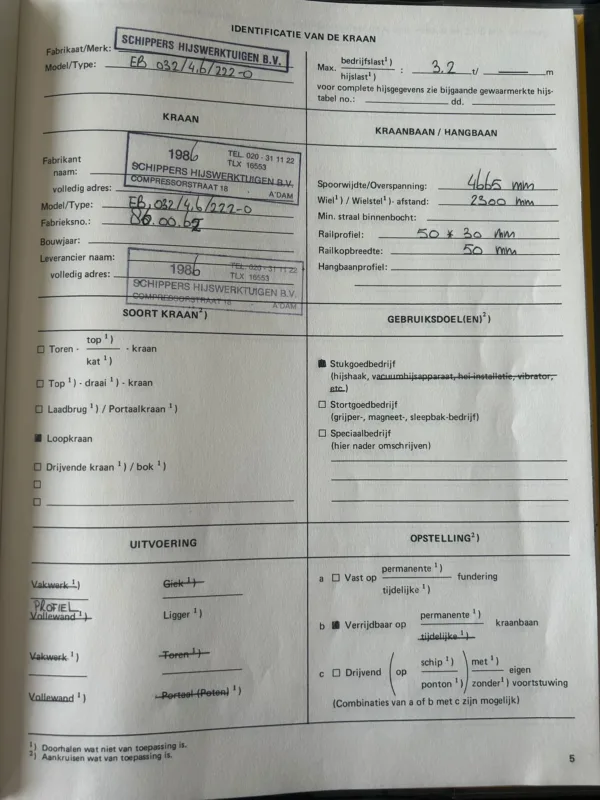 IDENTIFICATIE VAN DE KRAAN
Fabrikaat/Merk: SCHIPPERS HIJSWERKTUIGEN B.V.
Model/Type: EB 032/4,6/222-0
Max. bedrijfslast¹)
hijslast¹) : 3,2 t/ — m
voor complete hijsgegevens zie bijgaande gewaarmerkte hijs-
tabel no.: dd.
KRAAN
1986 TEL. 020 - 31 11 22
TLX 16553
Fabrikant
naam: SCHIPPERS HIJSWERKTUIGEN B.V.
volledig adres: COMPRESSORSTRAAT 18 - A'DAM
Model/Type: EB, 032/4,6/222-0
Fabrieksno.: 86.00.62
Bouwjaar:
Leverancier naam: 1986 TEL. 020 - 31 11 22
TLX 16553
volledig adres: SCHIPPERS HIJSWERKTUIGEN B.V.
COMPRESSORSTRAAT 18 - A'DAM
KRAANBAAN / HANGBAAN
Spoorwijdte/Overspanning: 4665 mm
Wiel¹) / Wielstel¹)- afstand: 2300 mm
Min. straal binnenbocht:
Railprofiel: 50 * 30 mm
Railkopbreedte: 50 mm
Hangbaanprofiel:
SOORT KRAAN²)
Toren - top¹)
kat¹) - kraan
Top¹) - draai¹) - kraan
Laadbrug¹) / Portaalkraan¹)
Loopkraan
Drijvende kraan¹) / bok¹)
GEBRUIKSDOEL(EN)²)
Stukgoedbedrijf
(hijshaak, vacuumhijsapparaat, hei-installatie, vibrator,
etc.)
Stortgoedbedrijf
(grijper-, magneet-, sleepbak-bedrijf)
Speciaalbedrijf
(hier nader omschrijven)
UITVOERING
Vakwerk¹) Giek¹)
PROFIEL
Vollewand¹) Ligger¹)
Vakwerk¹) Toren¹)
Vollewand¹) Portaal (Poten)¹)
OPSTELLING²)
a Vast op permanente¹)
tijdelijke¹) fundering
b Verrijdbaar op permanente¹)
tijdelijke¹) kraanbaan
c Drijvend (op schip¹)
ponton¹)) met¹)
zonder¹) eigen
voortstuwing
(Combinaties van a of b met c zijn mogelijk)
¹) Doorhalen wat niet van toepassing is.
²) Aankruisen wat van toepassing is.
5